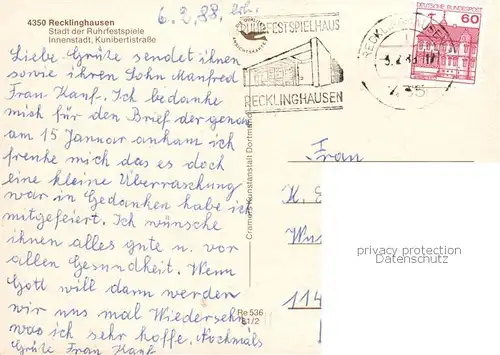 4350 Recklinghausen
Stadt der Ruhrfestspiele
Innenstadt, Kunibertistraße
6.2.88,
Liebe Grüße sendet ihnen
sowie ihren Sohn Manfred
Frau Kanf. Ich bedanke
mich für den Brief der genau
am 15 Januar anham ich
freuhe mich das es doch
eine kleine Überraschung
war in Gedanken habe ich
mitgefeiert. Ich wünsche
ihnen alles gute u. vor
allen Gesundheit. Wenn
Gott will dann werden
wir uns mal Wiedersehn
was ich sehr hoffe. Nochmals
Grüße Frau Kanf
Cramers Kunstanstalt Dortmund
Re 536
81/2
RUHRFESTSPIELHAUS
RECKLINGHAUSEN
RECKLINGHAUSEN
435
DEUTSCHE BUNDESPOST
60
Frau
H.
114
privacy protection
DARMSTADT.GMBH